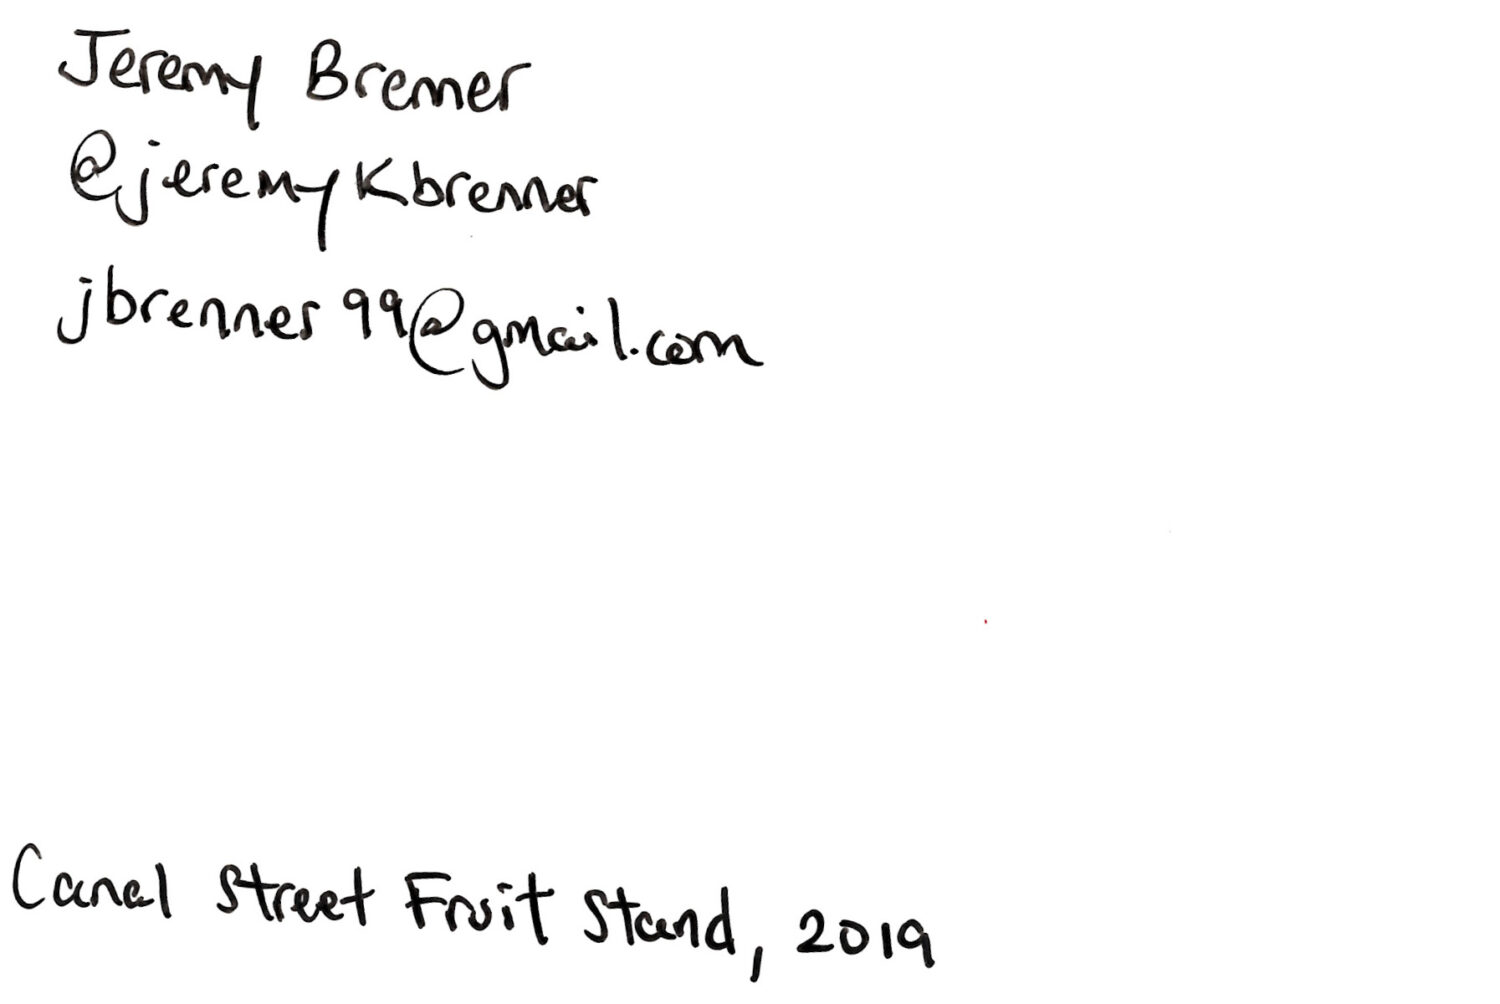 Jeremy Brenner
@jeremykbrenner
jbrenner99@gmail.com
Canal Street Fruit Stand, 2019